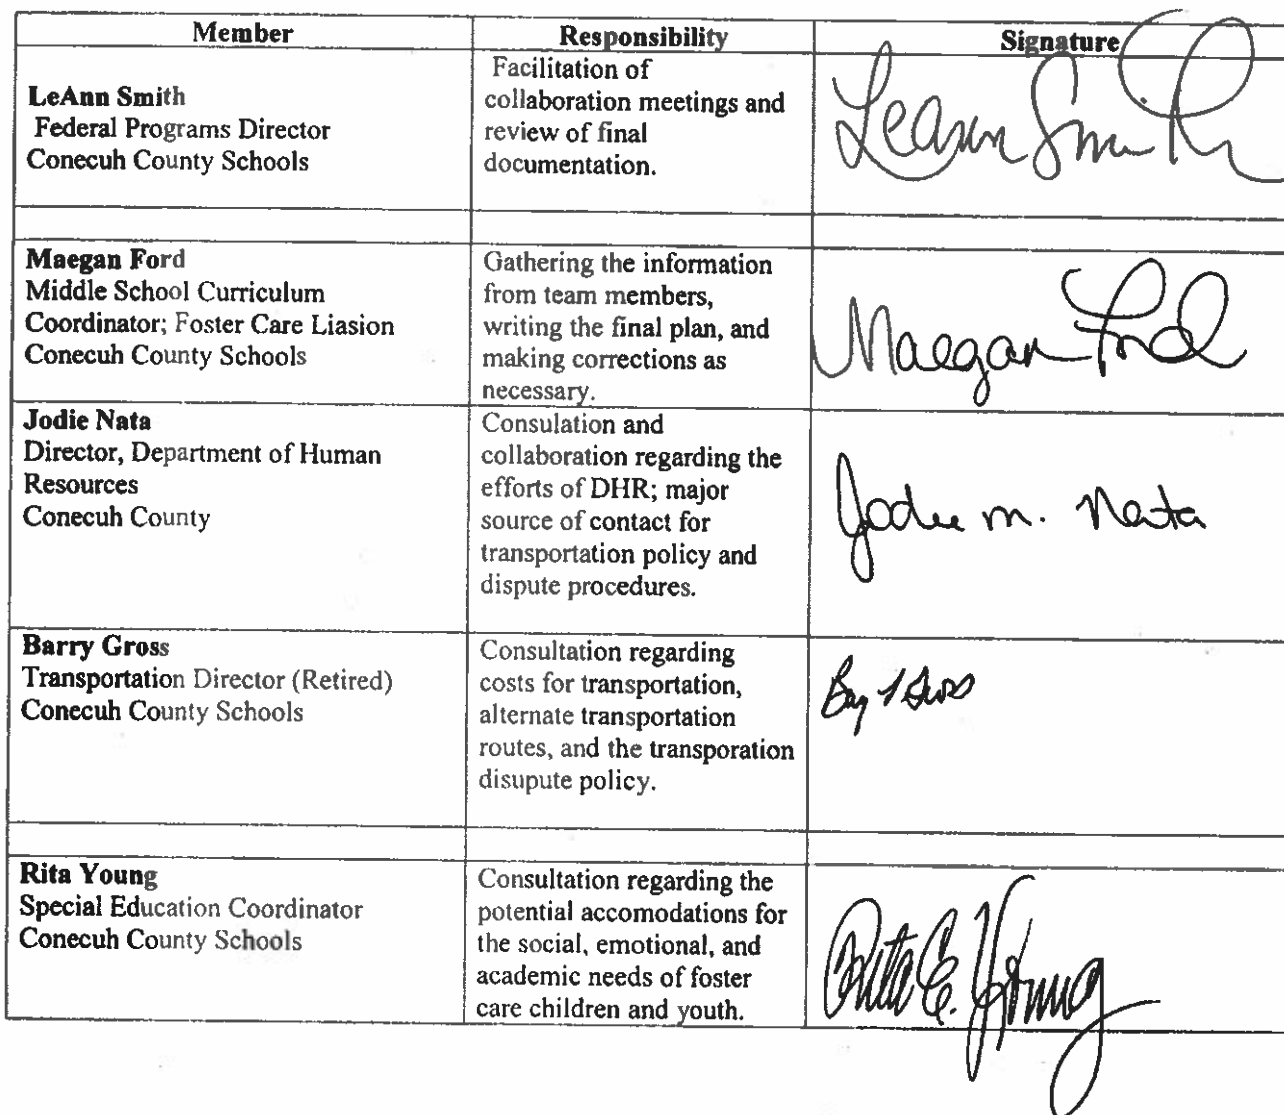 Member Responsibility Signature
LeAnn Smith
Federal Programs Director
Conecuh County Schools
Facilitation of
collaboration meetings and
review of final
documentation.
LeAnn Smith
Maegan Ford
Middle School Curriculum
Coordinator; Foster Care Liasion
Conecuh County Schools
Gathering the information
from team members,
writing the final plan, and
making corrections as
necessary.
Maegan Ford
Jodie Nata
Director, Department of Human
Resources
Conecuh County
Consulation and
collaboration regarding the
efforts of DHR; major
source of contact for
transportation policy and
dispute procedures.
Jodie m. Nata
Barry Gross
Transportation Director (Retired)
Conecuh County Schools
Consultation regarding
costs for transportation,
alternate transportation
routes, and the transporation
disupute policy.
Rita Young
Special Education Coordinator
Conecuh County Schools
Consultation regarding the
potential accomodations for
the social, emotional, and
academic needs of foster
care children and youth.
Rita E. Young